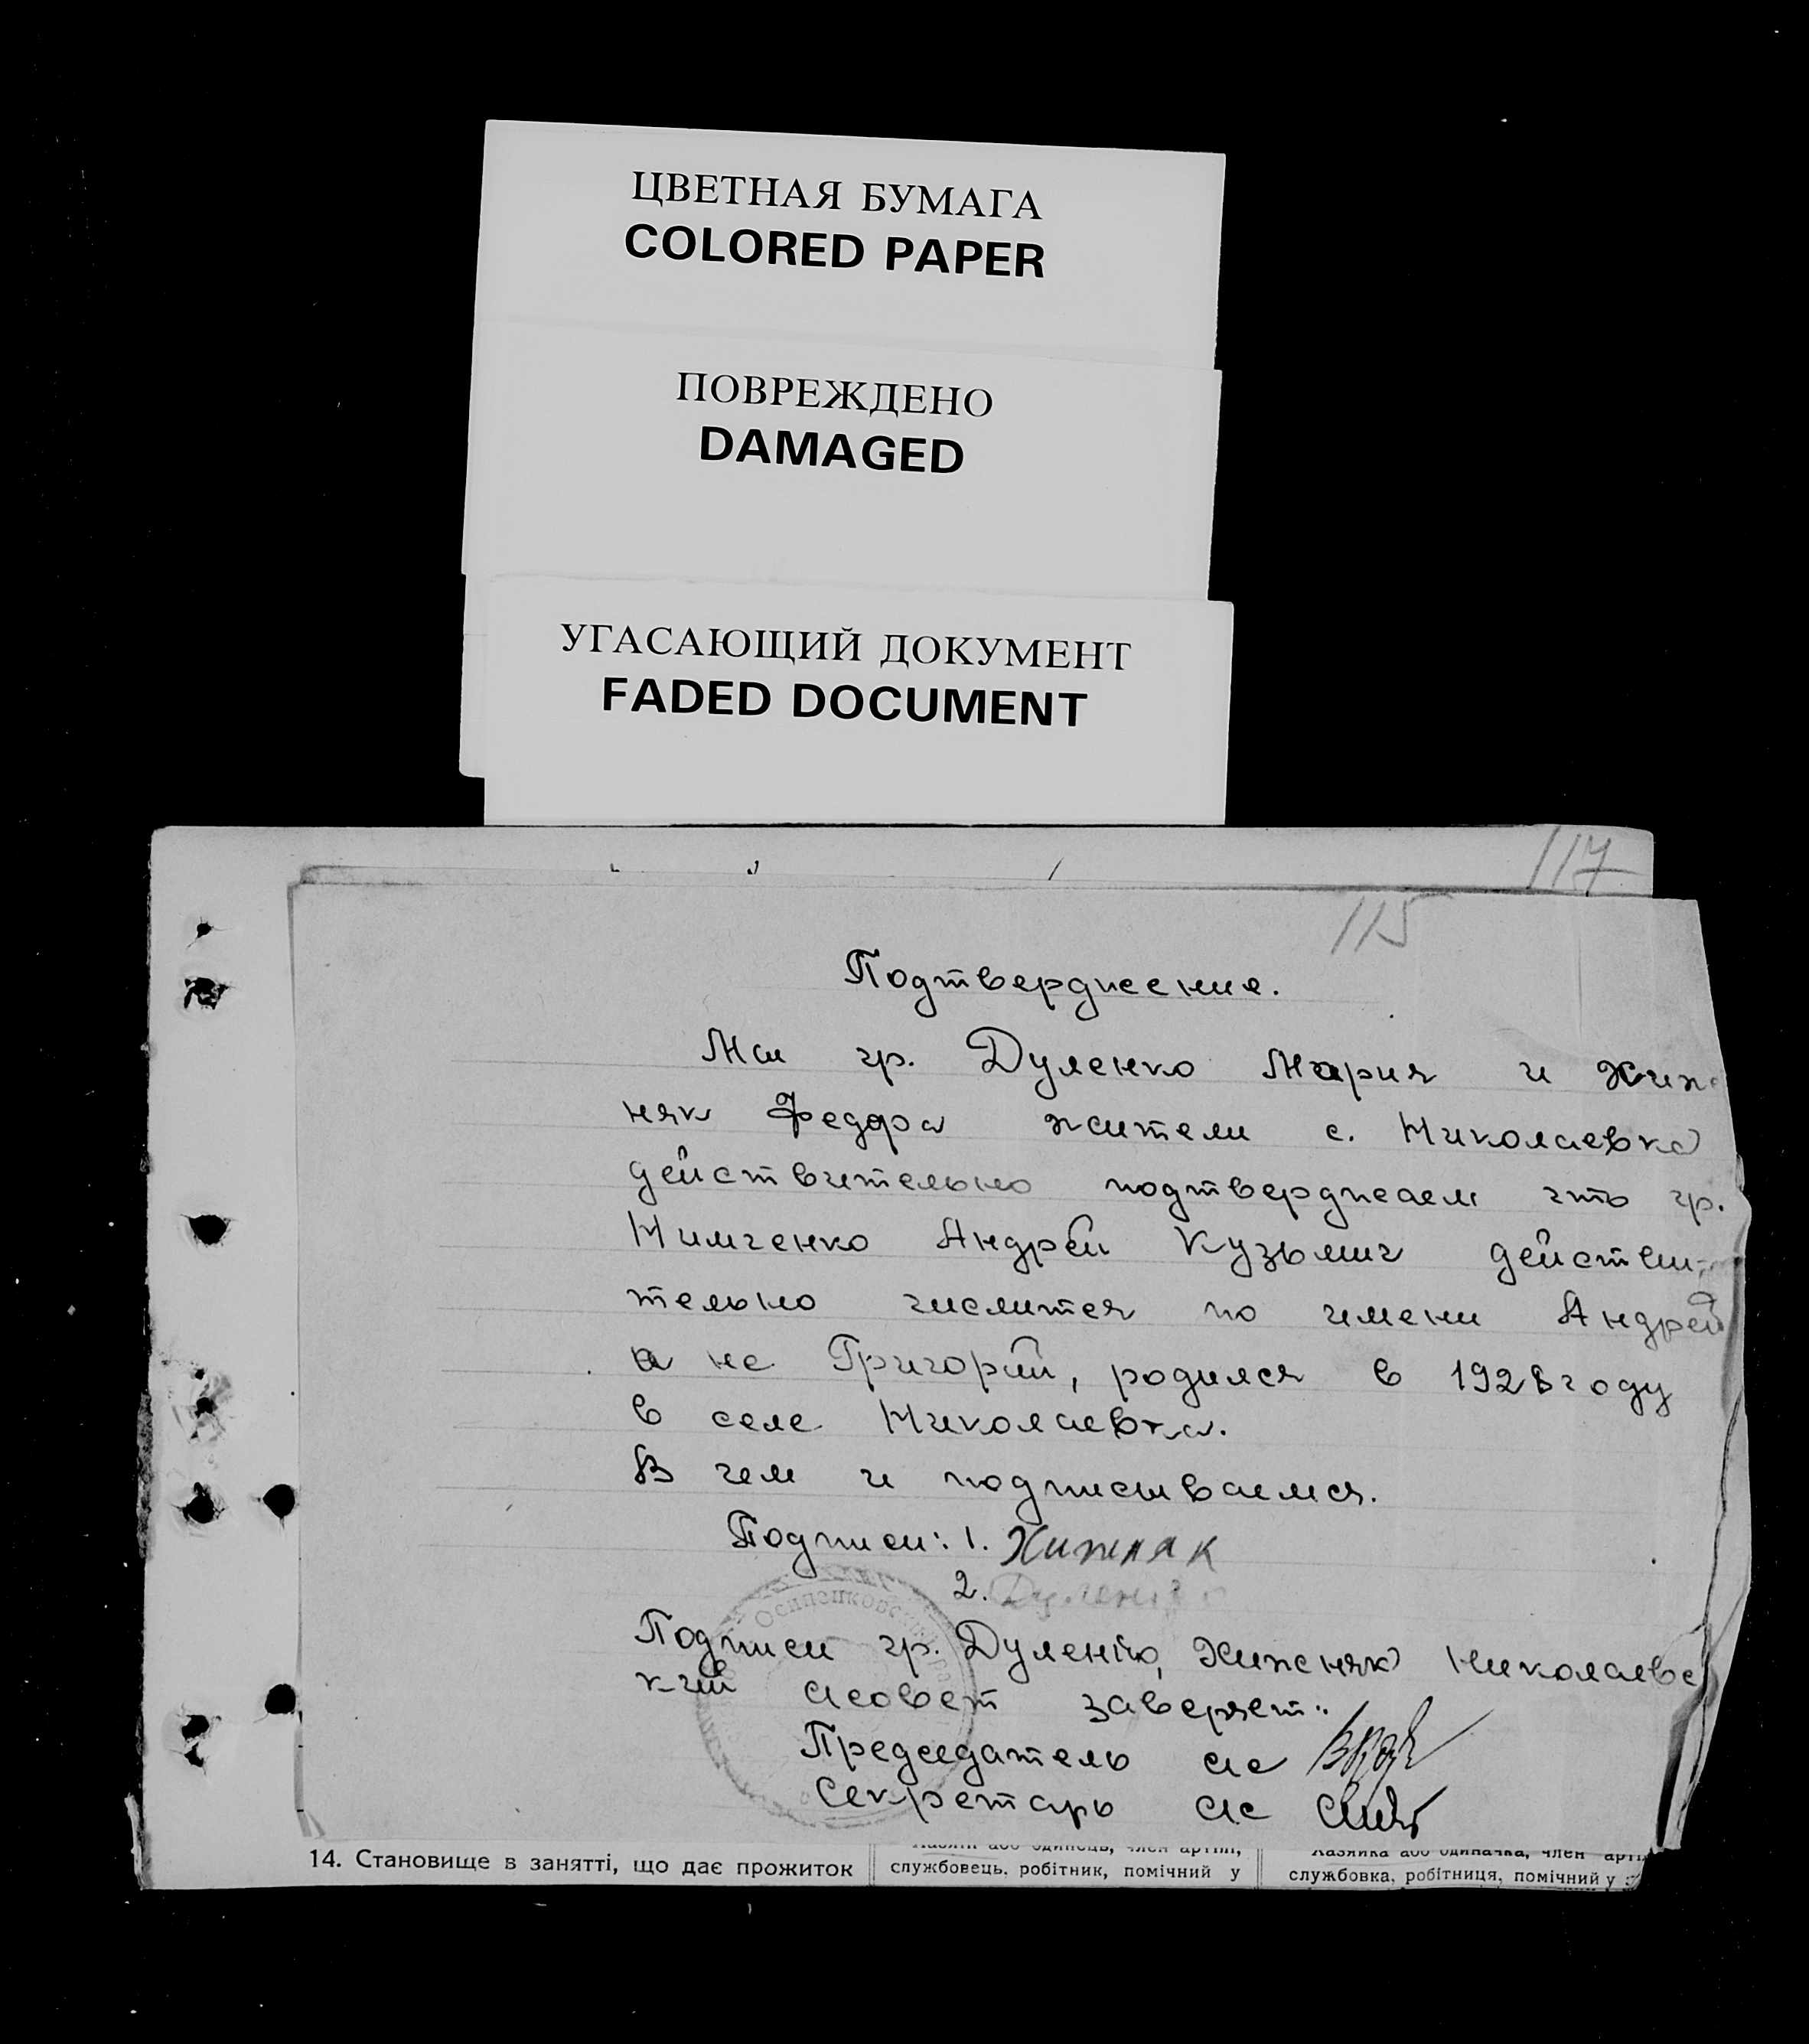 ЦВЕТНАЯ БУМАГА
COLORED PAPER
ПОВРЕЖДЕНО
DAMAGED
УГАСАЮЩИЙ ДОКУМЕНТ
FADED DOCUMENT
117
115
Подтверждение.
Мы гр. Дуленко Мария и Хиж
няк Федора жители с. Николаевка
действительно подтверждаем что гр.
Нимченко Андрей Кузьмич действи-
тельно числится по имени Андрей
а не Григорий, родился в 1928 году
в селе Николаевка.
В чем и подписываемся.
Подписи: 1. Хижняк
2. Дуленко
Осипенковский
Подписи гр. Дуленко, Хижняка Николаевс
кий с/совет заверяет:
Председатель с/с
Секретарь с/с
14. Становище в занятті, що дає прожиток
Хазяїн або одинець, член артілі,
службовець, робітник, помічний у
Хазяйка або одиначка, член арті
службовка, робітниця, помічний у